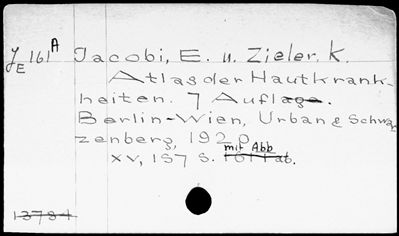 JE 161A Jacobi, E. u. Zieler. K.
Atlas der Hautkrank-
heiten. 7 Auflage.
Berlin-Wien, Urban & Schwar
zenberg, 1920
XV, 157 S. mit Abb
161 Tab.
13784